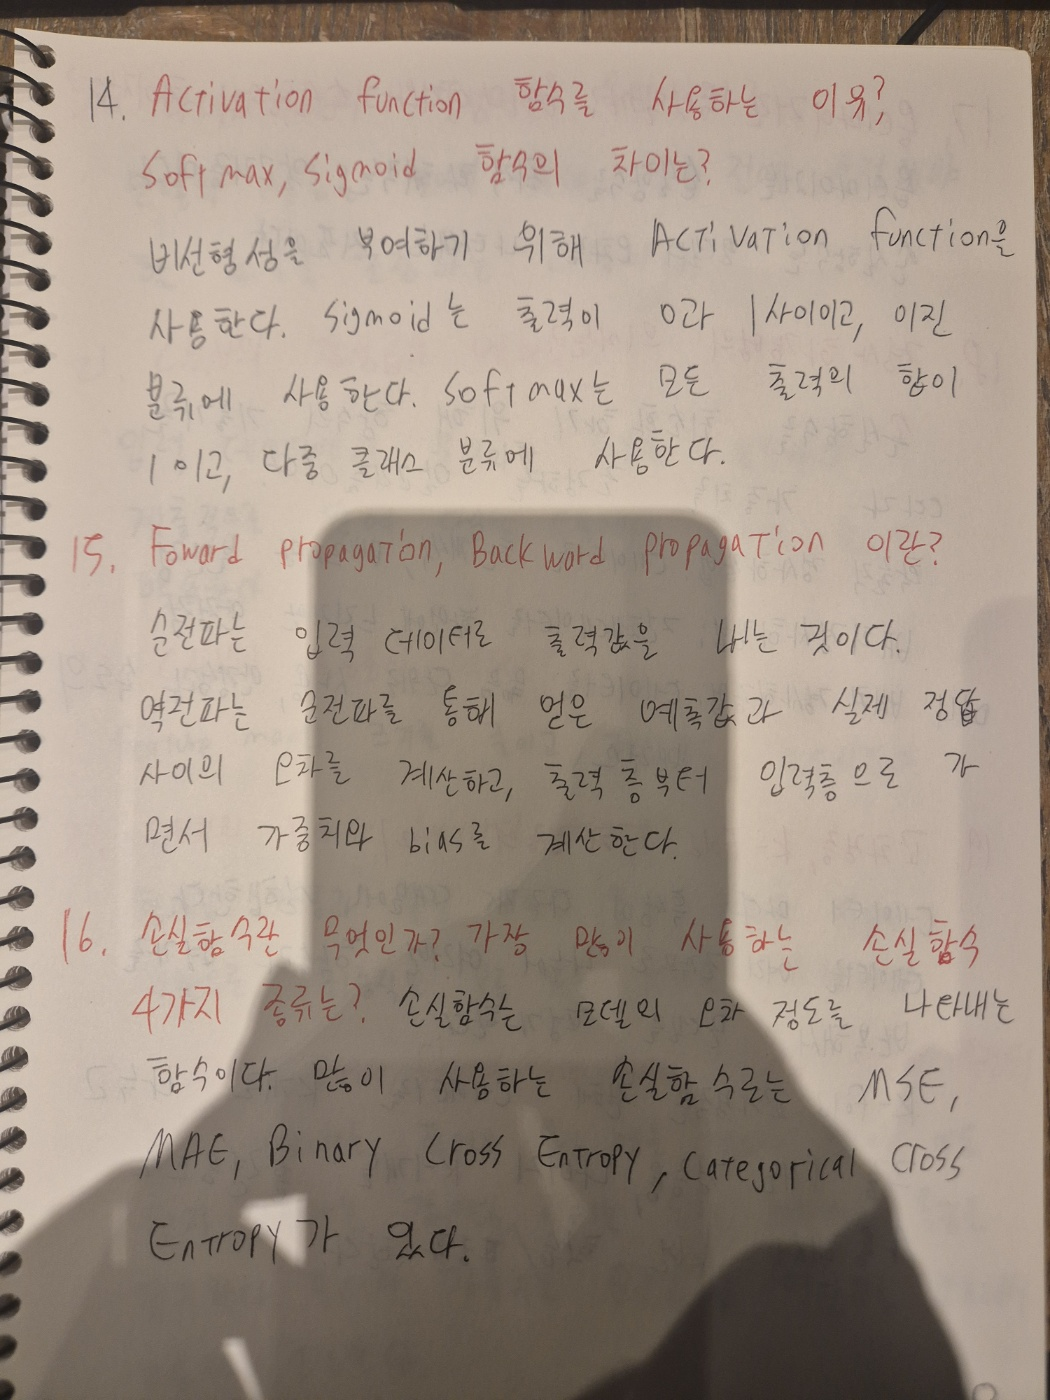 14. Activation function 함수를 사용하는 이유?
Softmax, Sigmoid 함수의 차이는?
비선형성을 부여하기 위해 Activation function을
사용한다. Sigmoid는 출력이 0과 1사이이고, 이진
분류에 사용한다. Softmax는 모든 출력의 합이
1이고, 다중 클래스 분류에 사용한다.
15. Foward propagation, Backword propagation 이란?
순전파는 입력 데이터로 출력값을 내는 것이다.
역전파는 순전파를 통해 얻은 예측값과 실제 정답
사이의 오차를 계산하고, 출력층부터 입력층으로 가
면서 가중치와 bias를 계산한다.
16. 손실함수란 무엇인가? 가장 많이 사용하는 손실함수
4가지 종류는? 손실함수는 모델의 오차 정도를 나타내는
함수이다. 많이 사용하는 손실함수로는 MSE,
MAE, Binary Cross Entropy, Categorical Cross
Entropy가 있다.